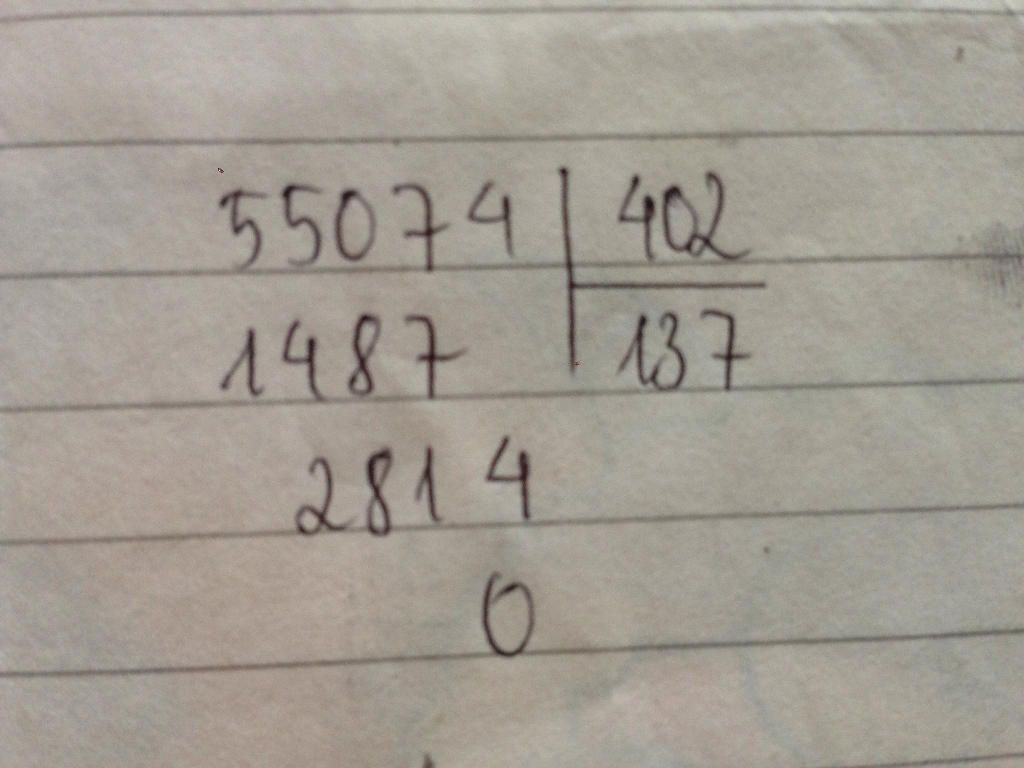 55074 | 402
1487 | 137
2814
0